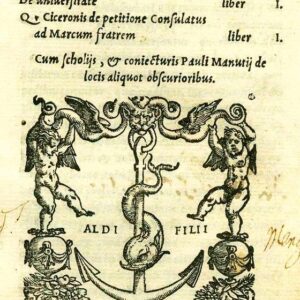 De universitate liber I.
Q. Ciceronis de petitione Consulatus
ad Marcum fratrem liber I.
Cum scholijs, & coniecturis Pauli Manutij de
locis aliquot obscurioribus.
ALDI FILII